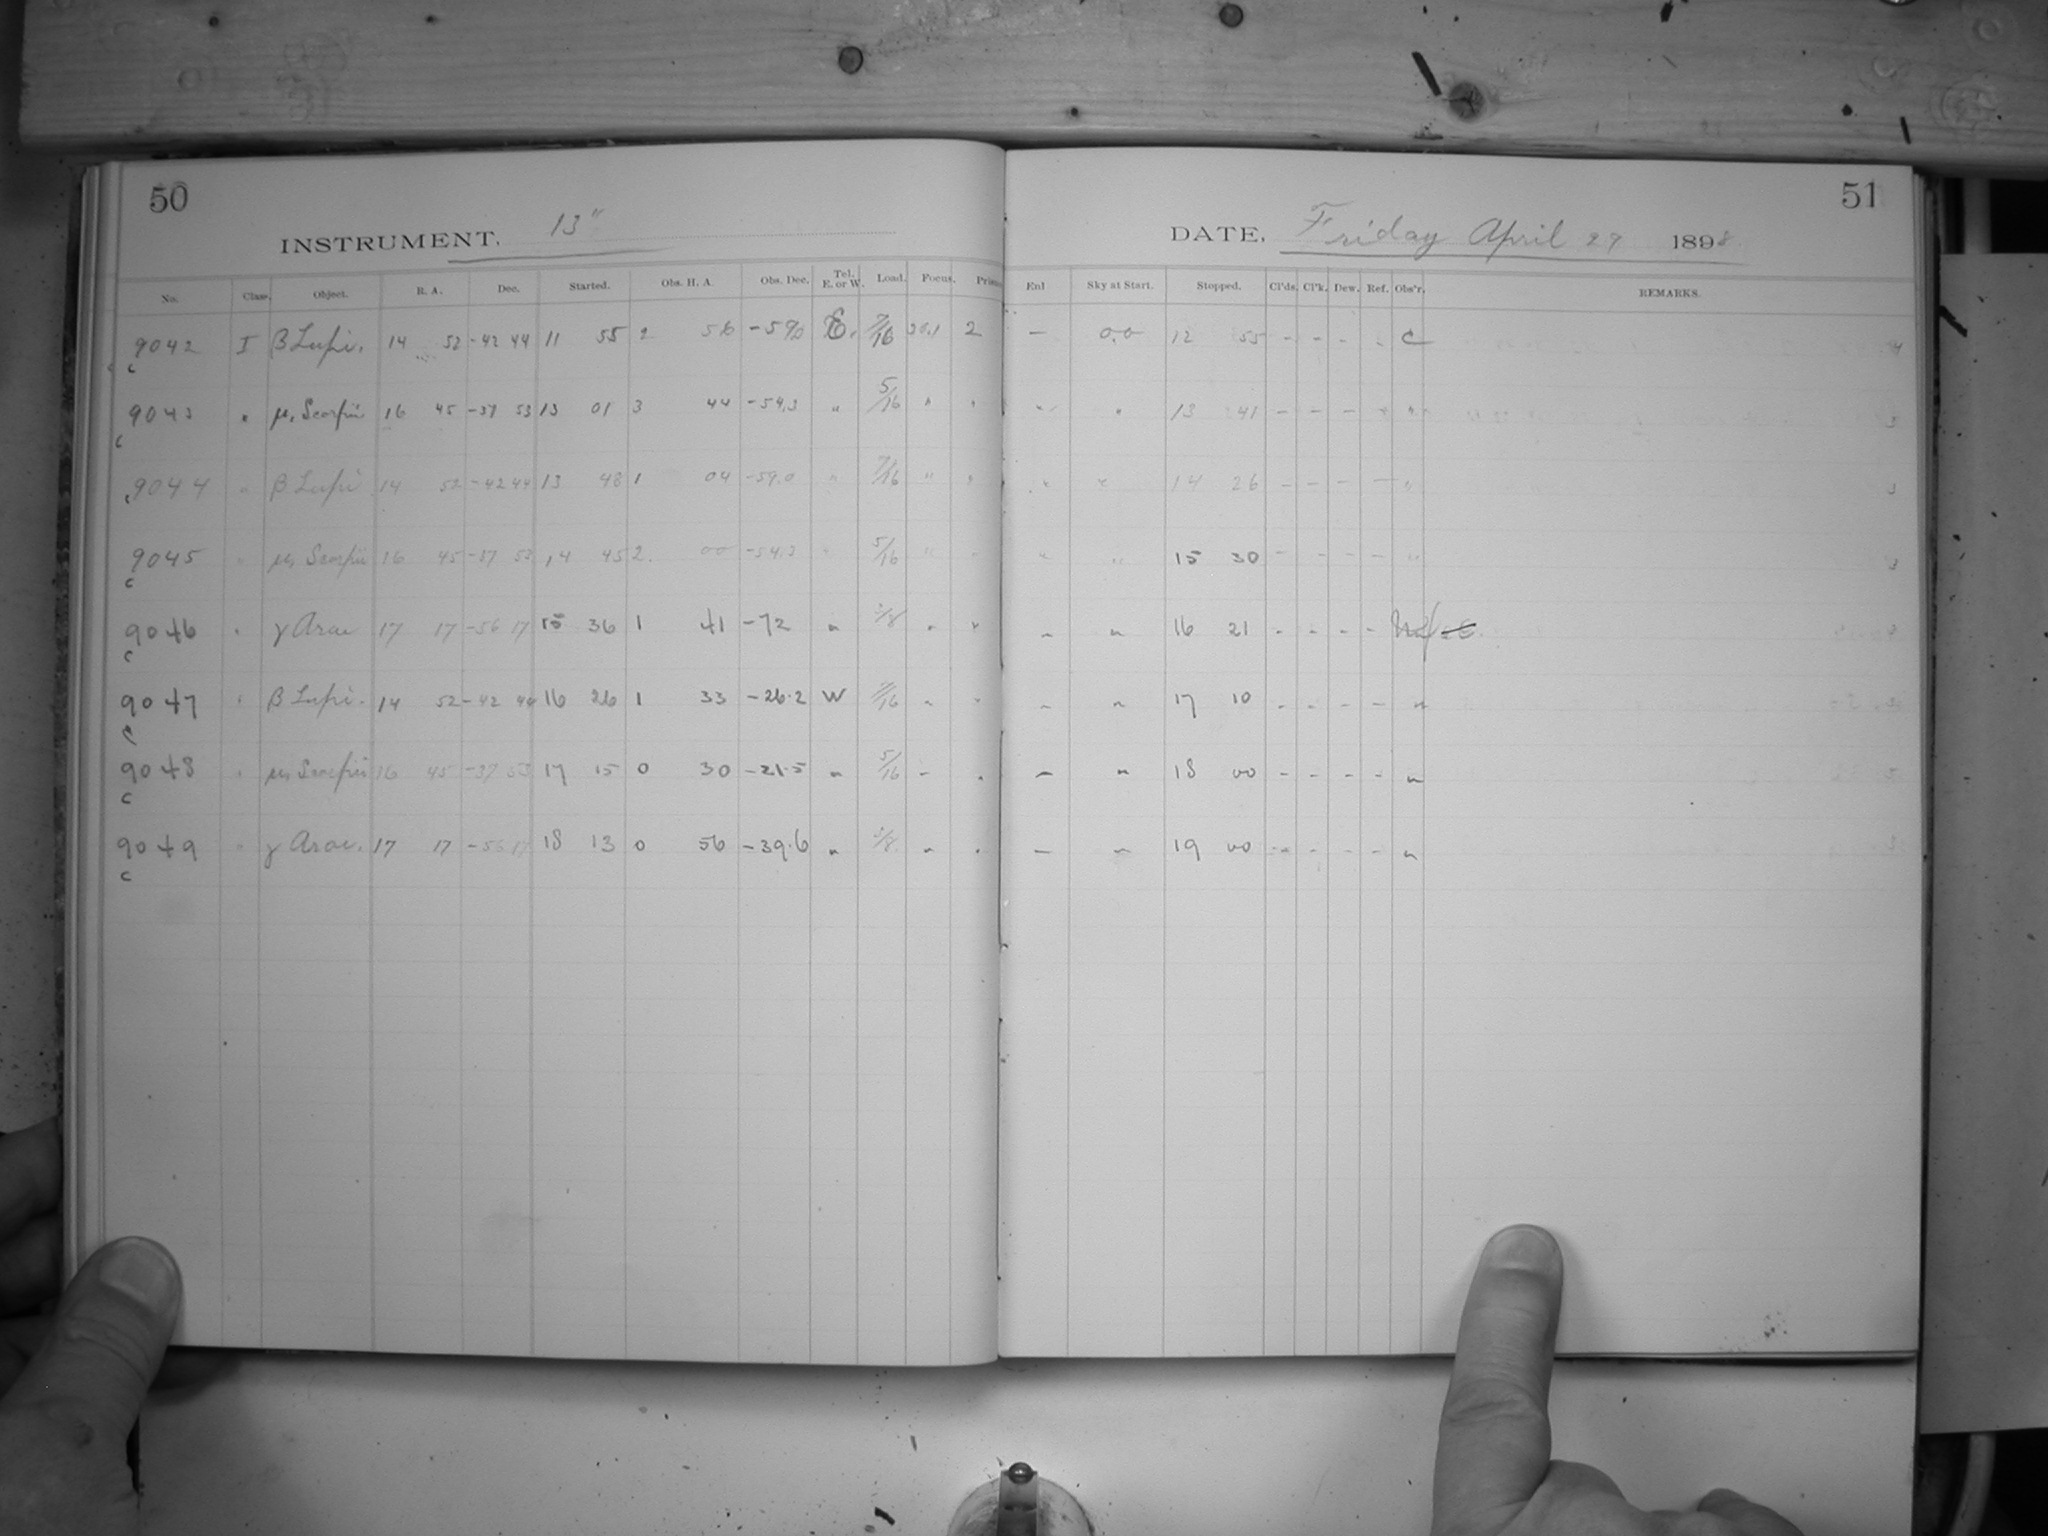 50
INSTRUMENT, 13"
No. Class. Object. R. A. Dec. Started. Obs. H. A. Obs. Dec. Tel. E. or W. Load. Focus. Prism
9042 I β Lupi. 14 52 -42 44 11 55 2 56 E. 7/16 30.1 2
c
9043 " μ, Scorpii 16 45 -37 53 13 01 3 44 -54.3 " 5/16 " "
c
9044 " β Lupi 14 52 -42 44 13 48 1 04 -59.0 " 7/16 " "
c
9045 " μ, Scorpii 16 45 -37 53 14 45 2. 00 -54.3 " 5/16 " "
c
9046 " γ Arae 17 17 -56 17 15 36 1 41 -72 " 3/8 " "
c
9047 " β Lupi. 14 52 -42 44 16 26 1 33 -26.2 W 7/16 " "
c
9048 " μ, Scorpii 16 45 -37 53 17 15 0 30 -21.5 " 5/16 " "
c
9049 " γ Arae. 17 17 -56 17 18 13 0 56 -39.6 " 3/8 " "
c
51
DATE, Friday April 29 1898.
Enl Sky at Start. Stopped. Cl'ds. Cl'k. Dew. Ref. Obs'r. REMARKS.
— 0.0 12 55 - - - - C
" " 13 41 - - - " "
" " 14 26 - - - - "
" " 15 30 - - - - "
" " 16 21 - - - -
" " 17 10 - - - - "
— " 18 00 - - - - "
— " 19 00 - - - - "